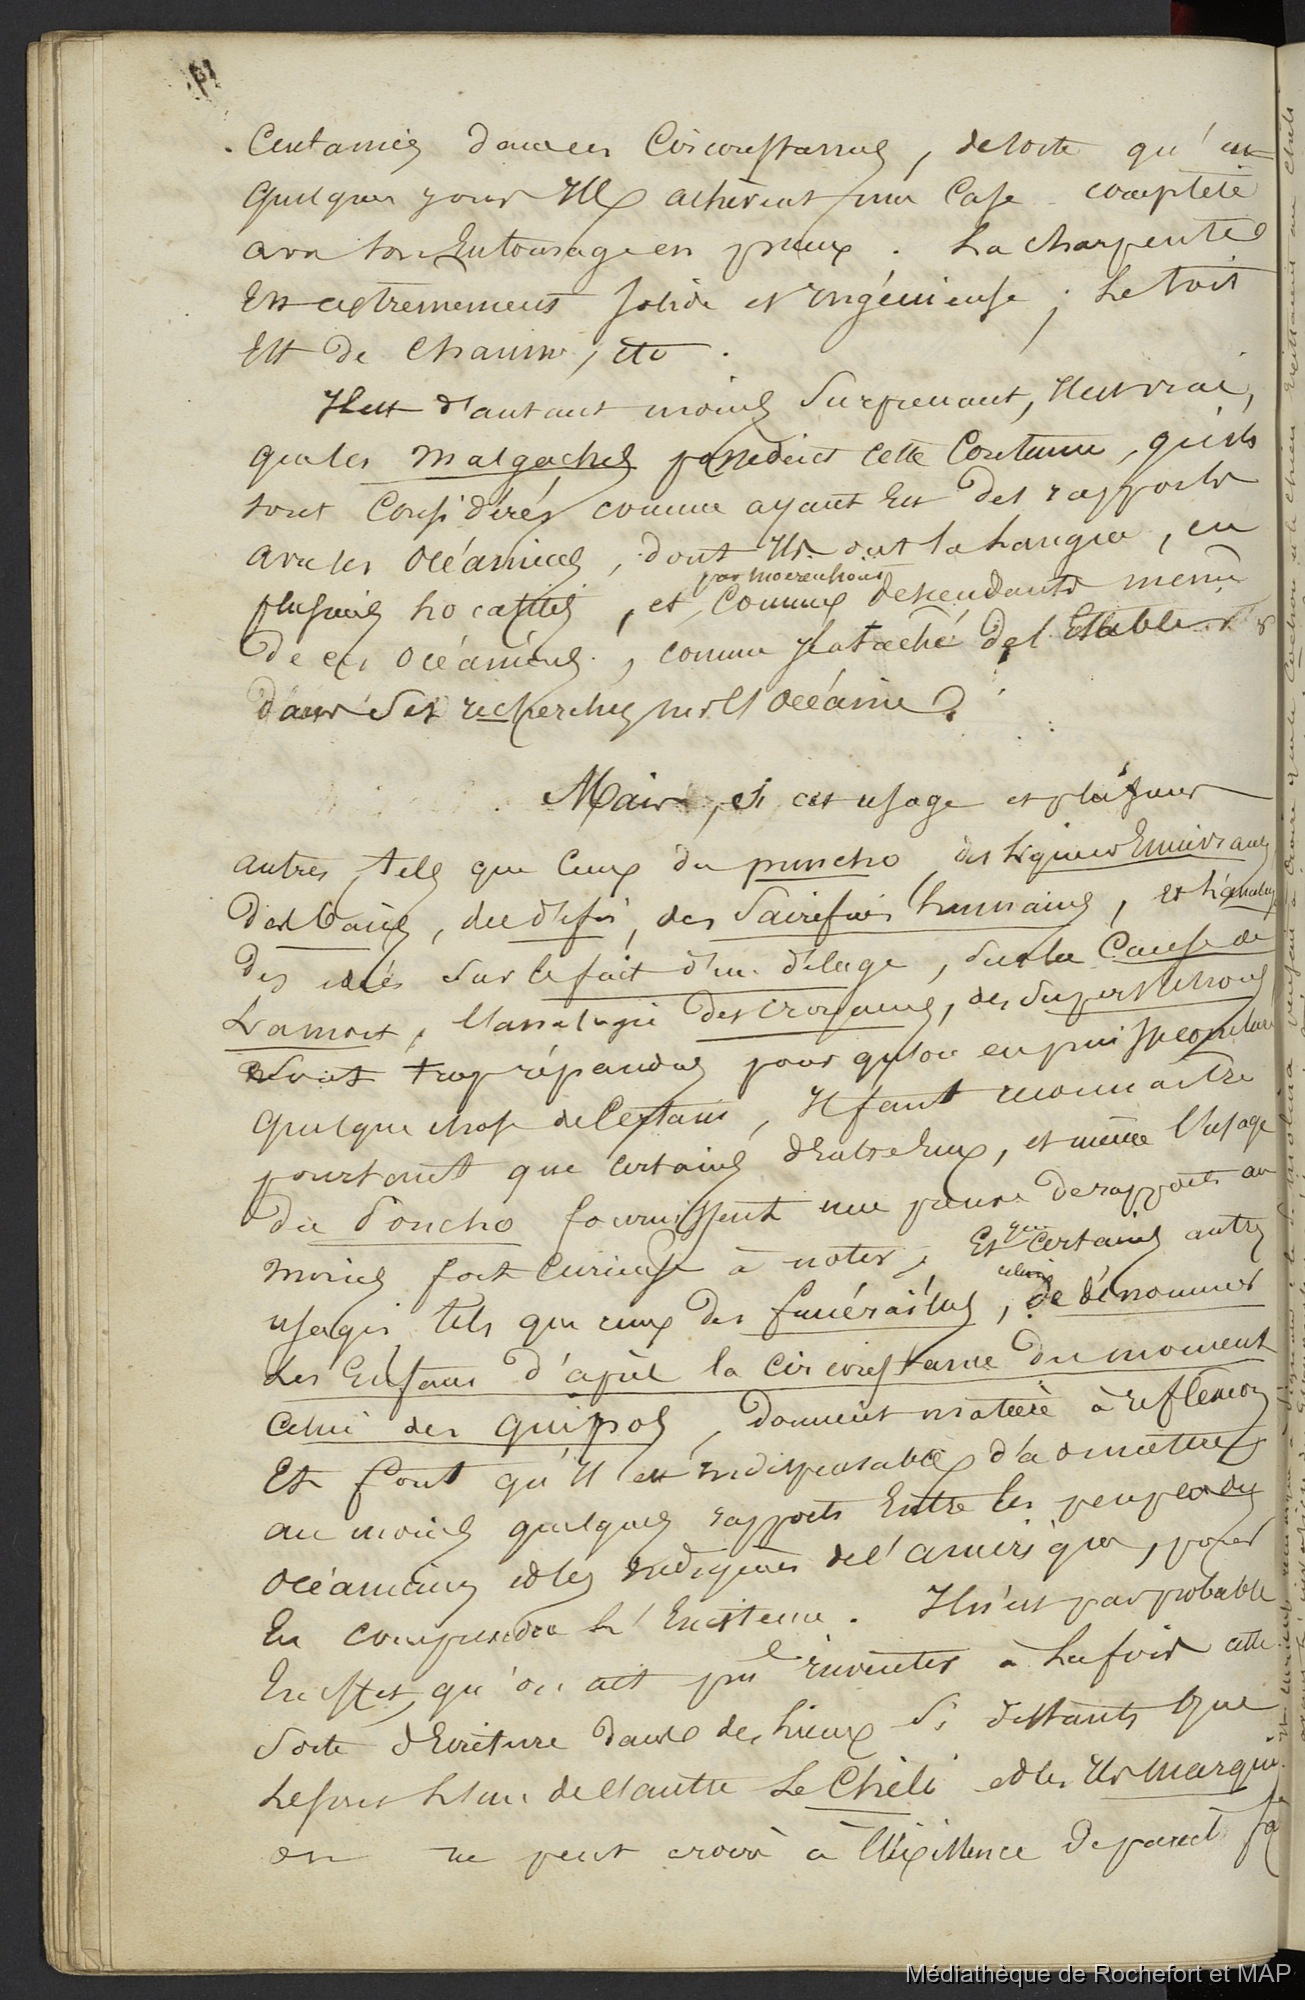 Centaines dans ces Circonstances, de sorte qu'en
quelques jours Ils achèvent une Case complète
avec son Entourage en pieux. La charpente
Est extrêmement solide et Ingénieuse; Le toit
Est de chaume, etc.
Il est d'autant moins Surprenant, Il est vrai,
que les Malgaches possèdent cette Coutume, qu'ils
sont Considérés comme ayant Eu des rapports
avec les Océaniens, dont Ils ont la Langue, en
par Moerenhout
plusieurs localités, et comme descendants même
de ces Océaniens, comme Il a tâché de l'Etablir
dans Ses recherches sur l'Océanie.
Mais, si cet usage et plusieurs
autres, tels que Ceux du puncho, des liqueurs Enivrantes
des bains, des défis, des Sacrifices humains, et L'analogie
des idées Sur le fait d'un déluge, Sur la Cause de
La mort, l'analogie des croyances, des Superstitions
Sont trop répandus pour qu'on en puisse conclure
quelque chose de Certain, Il faut reconnaître
pourtant que certains d'entre Eux, et même l'usage
du Poncho fournissent une preuve de rapports au
moins fort Curieuse à noter, Et que certains autres
usages tels que ceux des funérailles, celui de dénommer
Les Enfans d'après la circonstance du moment
Celui des quipos, donnent matière à réflexion
Et font qu'Il est Indispensable d'admettre
au moins quelques rapports Entre les peuplades
Océaniens et les Indigènes de l'amérique, pour
En comprendre L'Existence. Il n'est pas probable
En effet, qu'on ait pu inventer à La fois cette
Sorte d'Ecriture dans des Lieux Si distants que
Le sont L'un de l'autre Le Chili et les Iles Marquises
on ne peut croire à l'Existence de pareil
Médiathèque de Rochefort et MAP